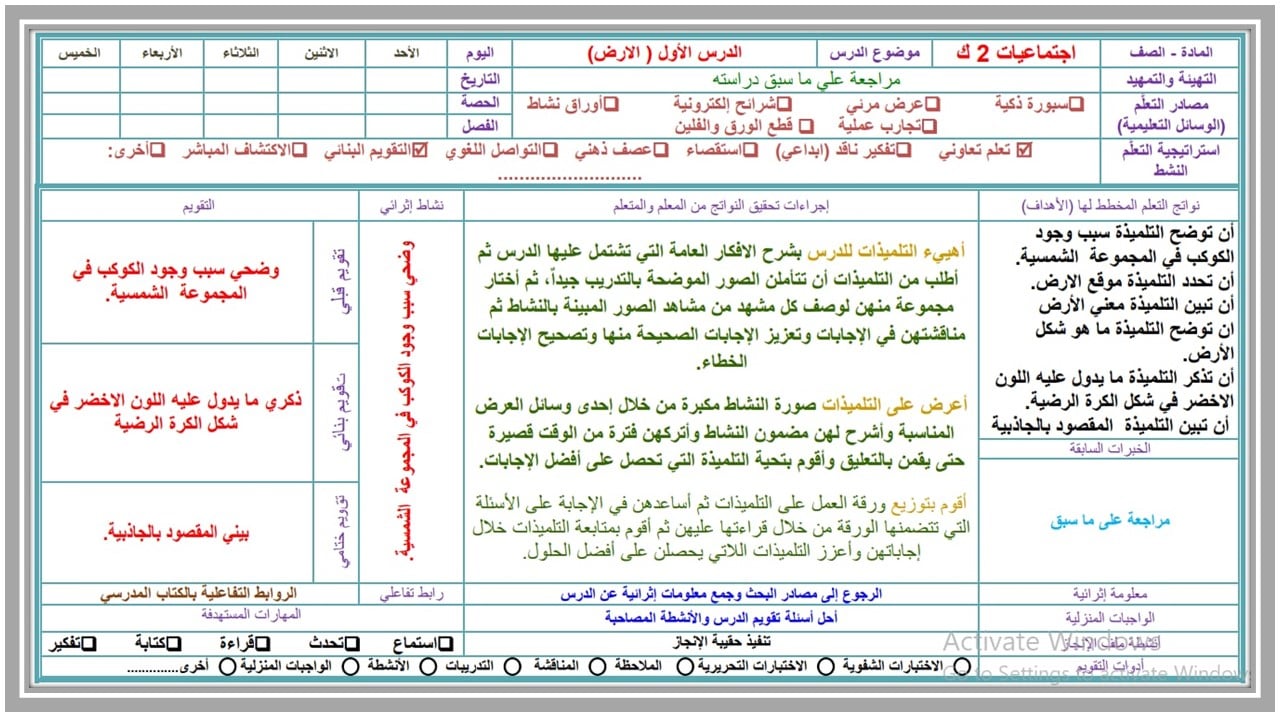 المادة - الصف
اجتماعيات 2 ك
موضوع الدرس
الدرس الأول ( الارض)
اليوم
الأحد
الاثنين
الثلاثاء
الأربعاء
الخميس
التهيئة والتمهيد
مراجعة علي ما سبق دراسته
التاريخ
مصادر التعلّم
(الوسائل التعليمية)
❑سبورة ذكية ❑عرض مرئي ❑شرائح إلكترونية ❑أوراق نشاط
❑تجارب عملية ❑ قطع الورق والفلين
الحصة
الفصل
استراتيجية التعلّم
النشط
☑ تعلم تعاوني ❑تفكير ناقد (ابداعي) ❑استقصاء ❑عصف ذهني ❑التواصل اللغوي ☑التقويم البنائي ❑الاكتشاف المباشر ❑أخرى:
...........................
نواتج التعلم المخطط لها (الأهداف)
إجراءات تحقيق النواتج من المعلم والمتعلم
نشاط إثرائي
التقويم
أن توضح التلميذة سبب وجود
الكوكب في المجموعة الشمسية.
أن تحدد التلميذة موقع الارض.
أن تبين التلميذة معني الأرض
ان توضح التلميذة ما هو شكل
الأرض.
أن تذكر التلميذة ما يدول عليه اللون
الاخضر في شكل الكرة الرضية.
أن تبين التلميذة المقصود بالجاذبية
الخبرات السابقة
مراجعة على ما سبق
أهييء التلميذات للدرس بشرح الافكار العامة التي تشتمل عليها الدرس ثم
أطلب من التلميذات أن تتأملن الصور الموضحة بالتدريب جيداً، ثم أختار
مجموعة منهن لوصف كل مشهد من مشاهد الصور المبينة بالنشاط ثم
مناقشتهن في الإجابات وتعزيز الإجابات الصحيحة منها وتصحيح الإجابات
الخطاء.
أعرض على التلميذات صورة النشاط مكبرة من خلال إحدى وسائل العرض
المناسبة وأشرح لهن مضمون النشاط وأتركهن فترة من الوقت قصيرة
حتى يقمن بالتعليق وأقوم بتحية التلميذة التي تحصل على أفضل الإجابات.
أقوم بتوزيع ورقة العمل على التلميذات ثم أساعدهن في الإجابة على الأسئلة
التي تتضمنها الورقة من خلال قراءتها عليهن ثم أقوم بمتابعة التلميذات خلال
إجاباتهن وأعزز التلميذات اللاتي يحصلن على أفضل الحلول.
وضحي سبب وجود الكوكب في المجموعة الشمسية.
تقويم قبلي
وضحي سبب وجود الكوكب في
المجموعة الشمسية.
تقويم بنائي
ذكري ما يدول عليه اللون الاخضر في
شكل الكرة الرضية
تقويم ختامي
بيني المقصود بالجاذبية.
معلومة إثرائية
الرجوع إلى مصادر البحث وجمع معلومات إثرائية عن الدرس
رابط تفاعلي
الروابط التفاعلية بالكتاب المدرسي
الواجبات المنزلية
أحل أسئلة تقويم الدرس والأنشطة المصاحبة
المهارات المستهدفة
أنشطة ملف الإنجاز
تنفيذ حقيبة الإنجاز
❑استماع ❑تحدث ❑قراءة ❑كتابة ❑تفكير
أدوات التقويم
○ الاختبارات الشفوية ○ الاختبارات التحريرية ○ الملاحظة ○ المناقشة ○ التدريبات ○ الأنشطة ○ الواجبات المنزلية ○ أخرى.............
Activate Windows
Go to Settings to activate Windows